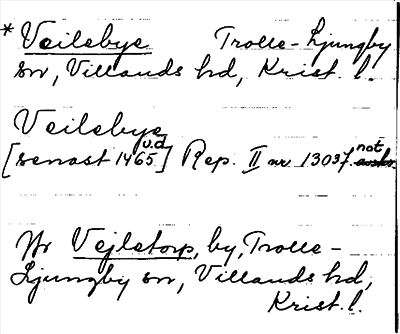 * Veilebye Trolle-Ljungby
sn, Villands hd, Krist. l.
Veilebye
[senast 1465 u.d.] Rep. II nr 13037 not
Jfr Vejletorp, by, Trolle-
Ljungby sn, Villands hd,
Krist. l.